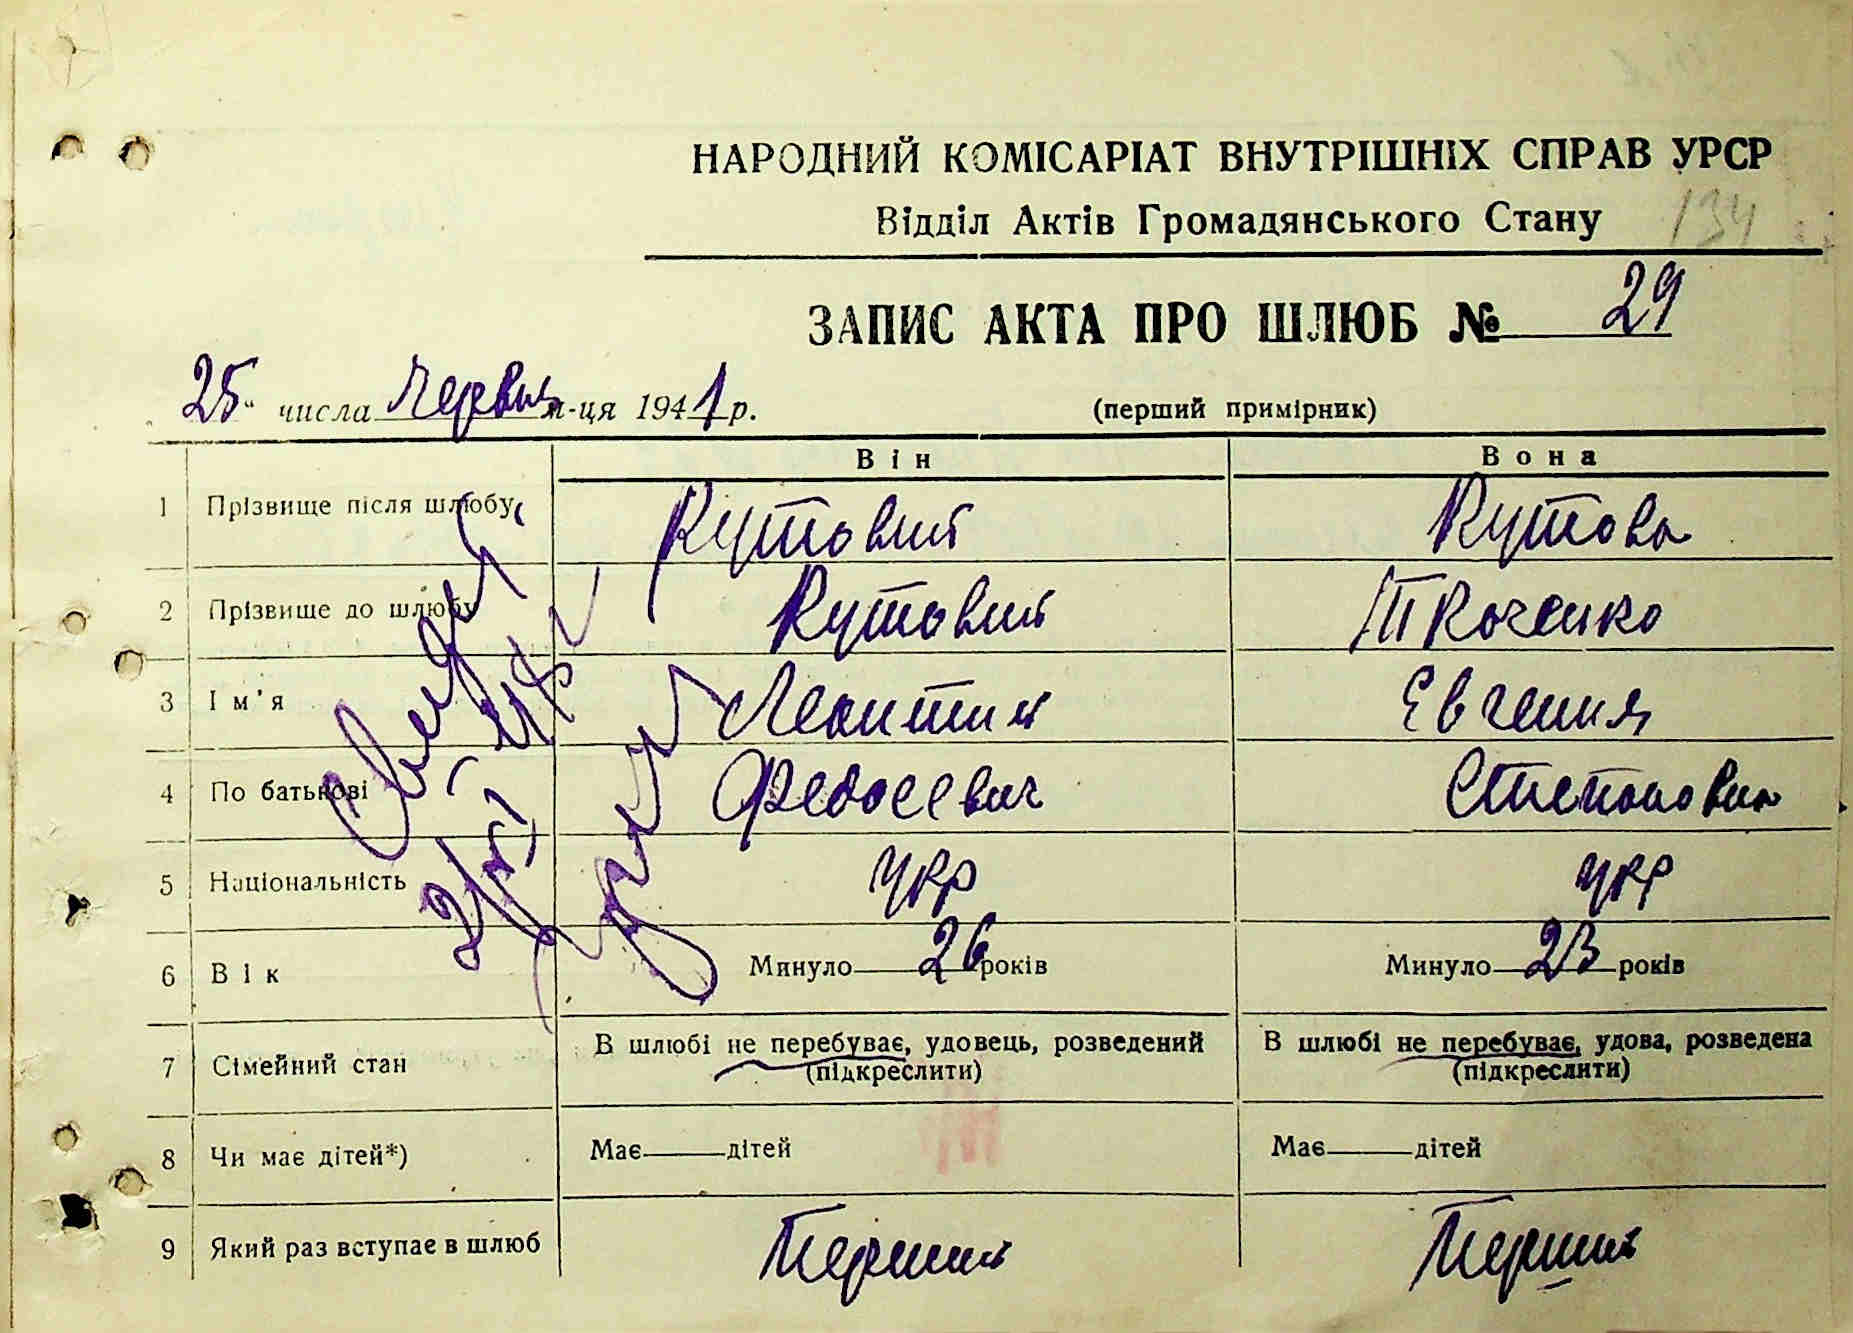 НАРОДНИЙ КОМІСАРІАТ ВНУТРІШНІХ СПРАВ УРСР
Відділ Актів Громадянського Стану 134
ЗАПИС АКТА ПРО ШЛЮБ № 29
25 " числа Червня м-ця 1941 р. (перший примірник)
Він Вона
1 Прізвище після шлюбу Кутовий Кутова
2 Прізвище до шлюбу Кутовий Ткаченко
3 Ім'я Леонтий Евгения
4 По батькові Федосеевич Степановна
5 Національність Укр Укр
6 Вік Минуло 26 років Минуло 23 років
7 Сімейний стан В шлюбі не перебуває, удовець, розведений (підкреслити) В шлюбі не перебуває, удова, розведена (підкреслити)
8 Чи має дітей*) Має — дітей Має — дітей
9 Який раз вступає в шлюб Перший Перший